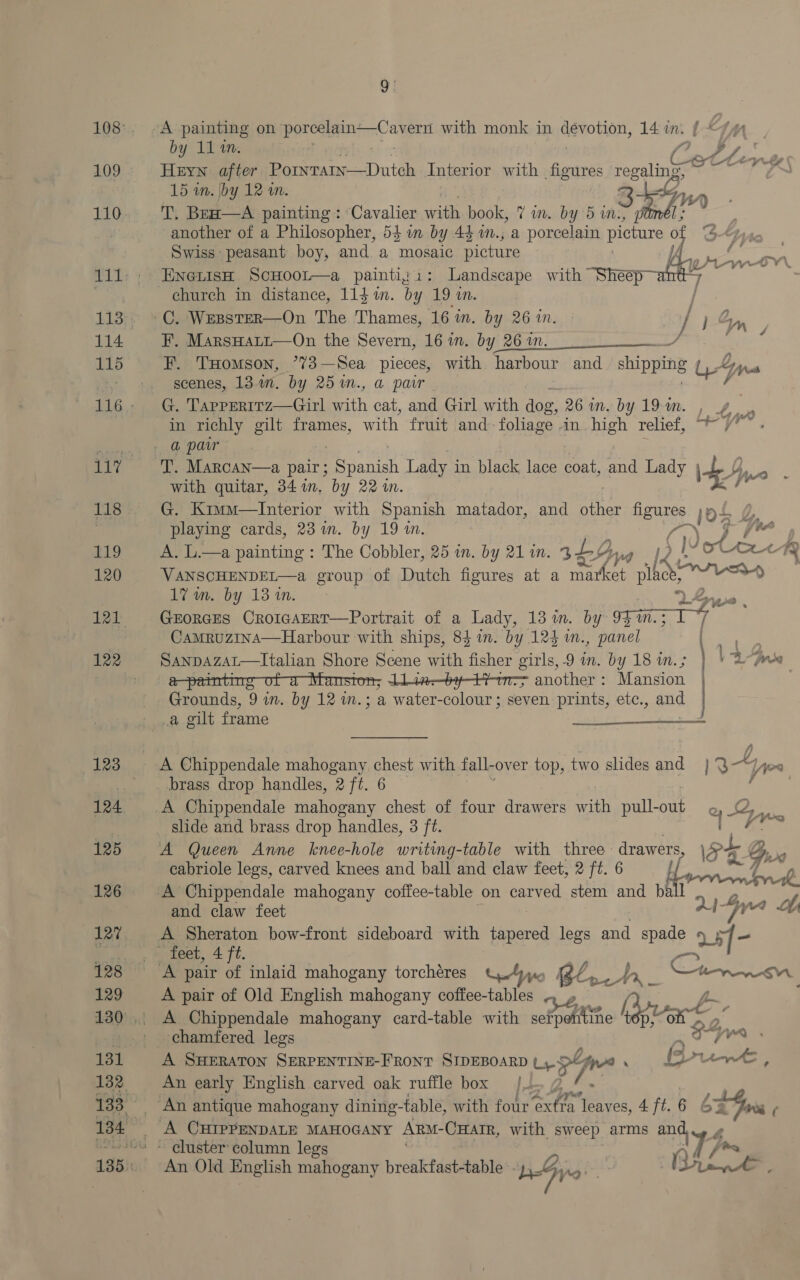 9
108 A painting on porcelain—Cavern with monk in devotion, 14 in.
by 11 in.
109 HEYN after POINTAIN—Dutch Interior with figures regaling,
15 in. by 12 in.
110 T. BEH—A painting: Cavalier with book, 7 in. by 5 in., panel;
another of a Philosopher, 5½ in by 4½ in., a porcelain picture of
Swiss peasant boy, and a mosaic picture
111 ENGLISH SCHOOL—a painting: Landscape with Sheep and
church in distance, 11½ in. by 19 in.
113 C. WEBSTER—On The Thames, 16 in. by 26 in.
114 F. MARSHALL—On the Severn, 16 in. by 26 in.
115 F. THOMSON, '73—Sea pieces, with harbour and shipping
scenes, 13 in. by 25 in., a pair
116 G. TAPPERITZ—Girl with cat, and Girl with dog, 26 in. by 19 in.
in richly gilt frames, with fruit and foliage in high relief,
a pair
117 T. MARCAN—a pair; Spanish Lady in black lace coat, and Lady
with quitar, 34 in. by 22 in.
118 G. KIMM—Interior with Spanish matador, and other figures
playing cards, 23 in. by 19 in.
119 A. L.—a painting: The Cobbler, 25 in. by 21 in.
120 VANSCHENDEL—a group of Dutch figures at a market place,
17 in. by 13 in.
121 GEORGES CROIGAERT—Portrait of a Lady, 13 in. by 9½ in.; T
CAMRUZINA—Harbour with ships, 8½ in. by 12½ in., panel
122 SANDAZAL—Italian Shore Scene with fisher girls, 9 in. by 18 in.;
a painting of a Mansion, 11 in. by 17 in.; another: Mansion
Grounds, 9 in. by 12 in.; a water-colour; seven prints, etc., and
a gilt frame
123 A Chippendale mahogany chest with fall-over top, two slides and
brass drop handles, 2 ft. 6
124 A Chippendale mahogany chest of four drawers with pull-out
slide and brass drop handles, 3 ft.
125 A Queen Anne knee-hole writing-table with three drawers,
cabriole legs, carved knees and ball and claw feet, 2 ft. 6
126 A Chippendale mahogany coffee-table on carved stem and ball
and claw feet
127 A Sheraton bow-front sideboard with tapered legs and spade
feet, 4 ft.
128 A pair of inlaid mahogany torchères
129 A pair of Old English mahogany coffee-tables
130 A Chippendale mahogany card-table with serpentine top, on
chamfered legs
131 A SHERATON SERPENTINE-FRONT SIDEBOARD
132 An early English carved oak ruffle box
133 An antique mahogany dining-table, with four extra leaves, 4 ft. 6
134 A CHIPPENDALE MAHOGANY ARM-CHAIR, with sweep arms and
cluster column legs
135 An Old English mahogany breakfast-table